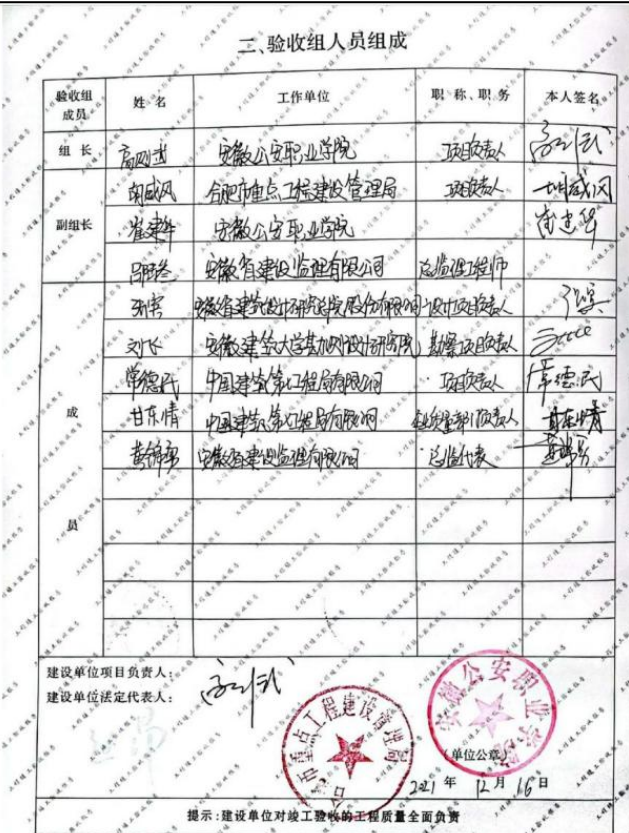 二、验收组人员组成
验收组成员 姓 名 工作单位 职 称、职 务 本人签名
组 长 高刚武 安徽公安职业学院 项目负责人
副组长 胡咸风 合肥市重点工程建设管理局 项目负责人 胡咸风
崔建华 安徽公安职业学院 崔建华
安徽省建设监理有限公司 总监理工程师
成员 安徽省建筑设计研究总院股份有限公司 设计项目负责人
刘飞 安徽建筑大学 设计研究院 勘察项目负责人
常德民 中国建筑第 工程局有限公司 项目负责人 常德民
甘东晴 中国建筑第 工程局有限公司 企业质量部门负责人 甘东晴
安徽省建设监理有限公司 总监代表
建设单位项目负责人:
建设单位法定代表人:
合肥市重点工程建设管理局
安徽公安职业学院
(单位公章)
2021 年 12 月 16 日
提示:建设单位对竣工验收的工程质量全面负责